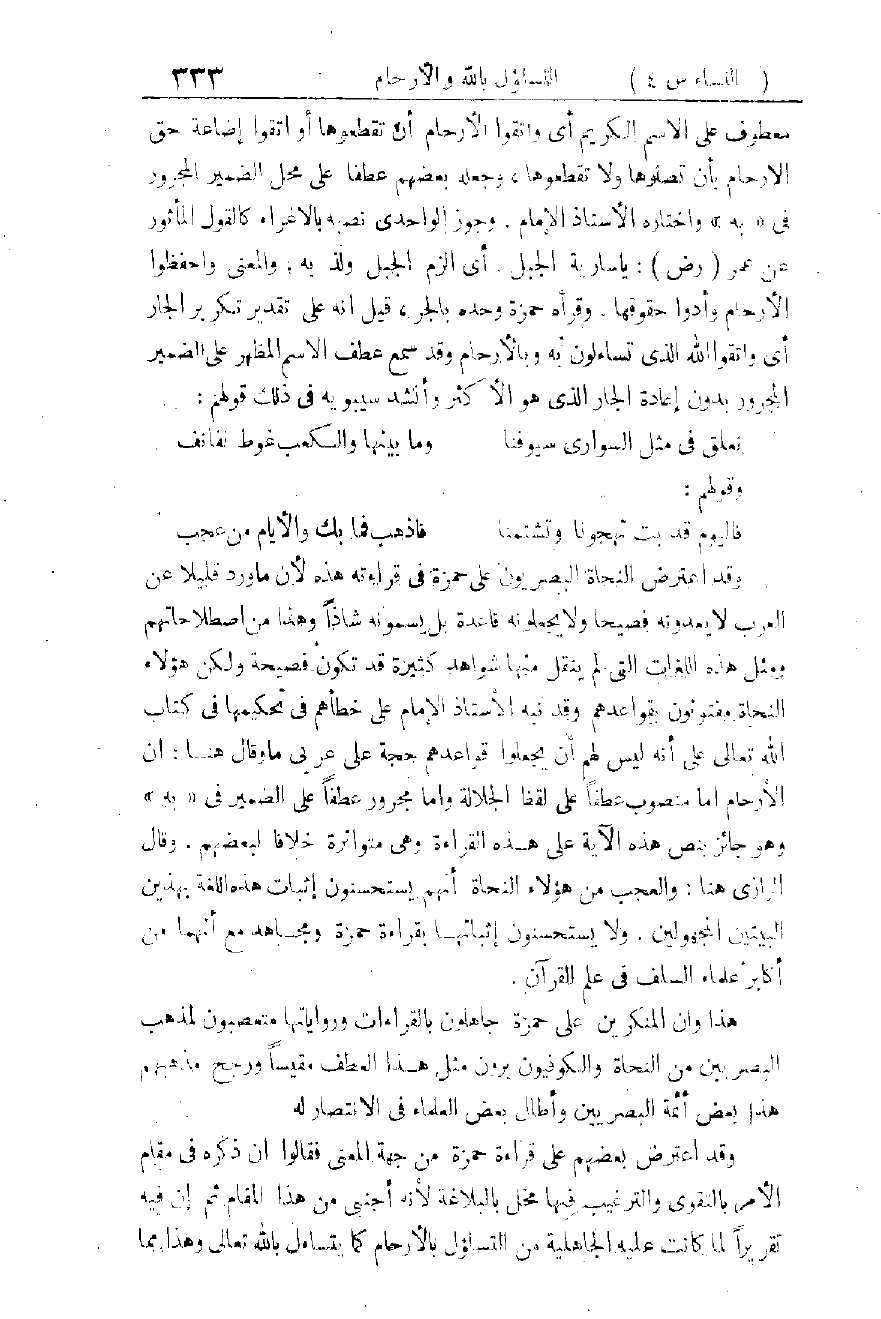 ( النساء س ٤ ) التساؤل بالله والأرحام ٣٣٣
معطوف على الاسم الكريم أى واتقوا الأرحام أن تقطعوها أو اتقوا إضاعة حق
الارحام بأن تصلوها ولا تقطعوها ، وجعله بعضهم عطفا على محل الضمير المجرور
فى « به » واختاره الأستاذ الإمام . وجوز الواحدى نصبه بالاغراء كالقول المأثور
عن عمر ( رض ) : ياسارية الجبل . أى الزم الجبل ولذ به ; والمعنى واحفظوا
الأرحام وأدوا حقوقها . وقرأه حمزة وحده بالجر ، قيل انه على تقدير تكرير الجار
أى واتقوا الله الذى تساءلون به وبالأرحام وقد سمع عطف الاسم المظهر على الضمير
المجرور بدون إعادة الجار الذى هو الأكثر وأنشد سيبويه فى ذلك قولهم :
نعلق فى مثل السوارى سيوفنا وما بينها والكعب غوط نفانف
وقولهم :
فاليوم قد بت تهجونا وتشتمنا فاذهب فما بك والأيام من عجب
وقد اعترض النحاة البصريون على حمزة فى قراءته هذه لأن ماورد قليلا عن
العرب لا يعدونه فصيحا ولا يجعلونه قاعدة بل يسمونه شاذاً وهذا من اصطلاحاتهم
ومثل هذه اللغات التى لم ينقل منها شواهد كثيرة قد تكون فصيحة ولكن هؤلاء
النحاة مفتونون بقواعدهم وقد نبه الأستاذ الإمام على خطأهم فى تحكيمها فى كتاب
الله تعالى على أنه ليس لهم أن يجعلوا قواعدهم حجة على عربى ما وقال هنا : ان
الأرحام اما منصوب عطفاً على لفظ الجلالة واما مجرور عطفاً على الضمير فى « به »
وهو جائز بنص هذه الآية على هذه القراءة وهى متواترة خلافا لبعضهم . وقال
الرازى هنا : والعجب من هؤلاء النحاة أنهم يستحسنون إثبات هذه اللغة بهذين
البيتين المجهولين . ولا يستحسنون إثباتها بقراءة حمزة ومجاهد مع أنهما من
أكابر علماء السلف فى علم القرآن .
هذا وان المنكرين على حمزة جاهلون بالقراءات ورواياتها متعصبون لمذهب
البصريين من النحاة والكوفيون يرون مثل هذا العطف مقيساً ورجح مذهبهم
هذا بعض أئمة البصريين وأطال بعض العلماء فى الانتصار له
وقد اعترض بعضهم على قراءة حمزة من جهة المعنى فقالوا ان ذكره فى مقام
الأمر بالتقوى والترغيب فيها مخل بالبلاغة لأنه أجنبى من هذا المقام ثم إن فيه
تقريراً لما كانت عليه الجاهلية من التساؤل بالأرحام كما يتساءل بالله تعالى وهذا مما